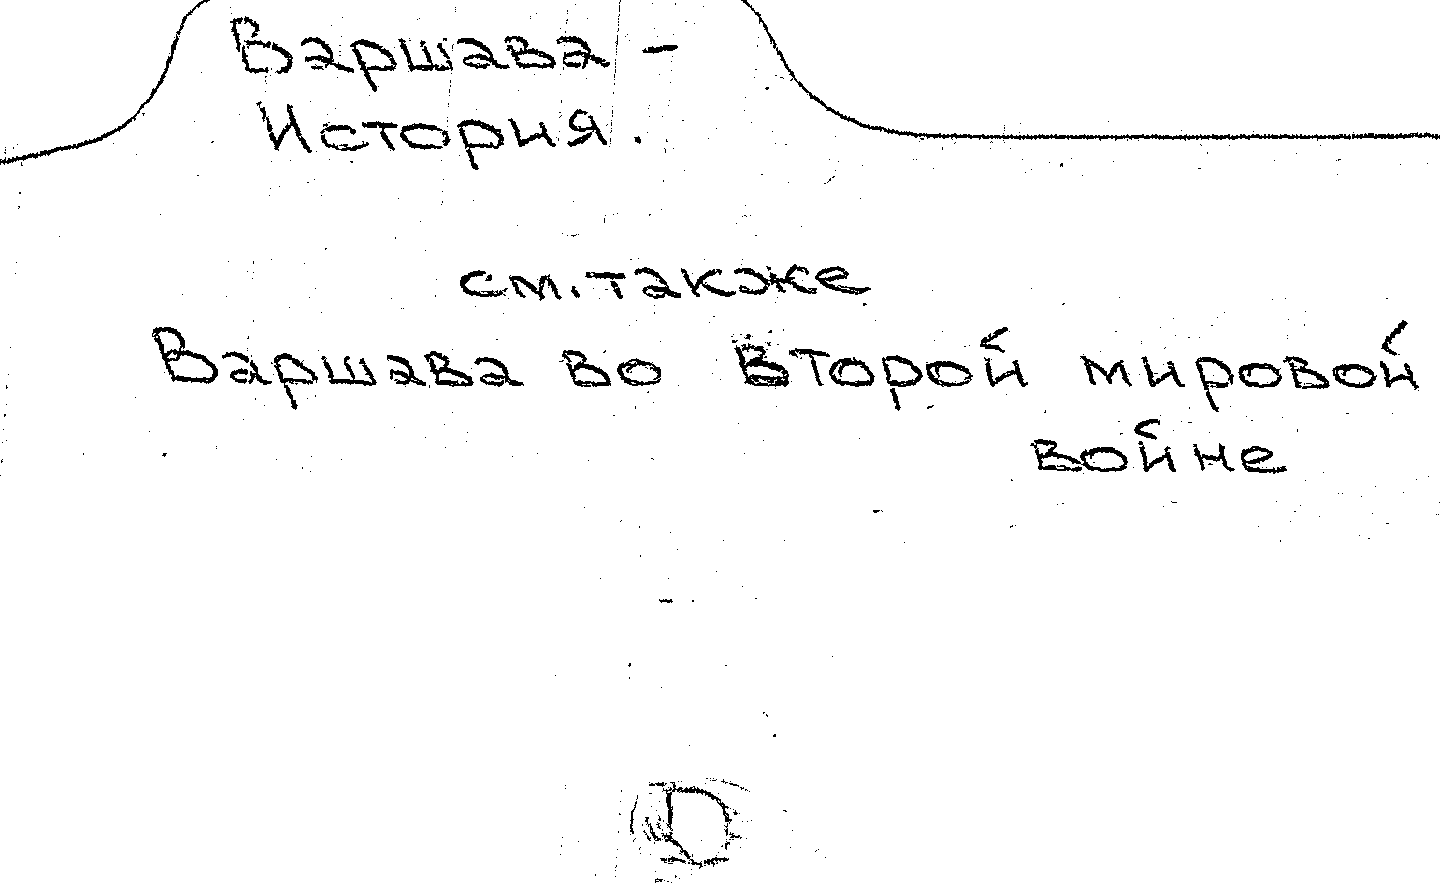 Варшава -
История.
см. также
Варшава во Второй мировой
войне